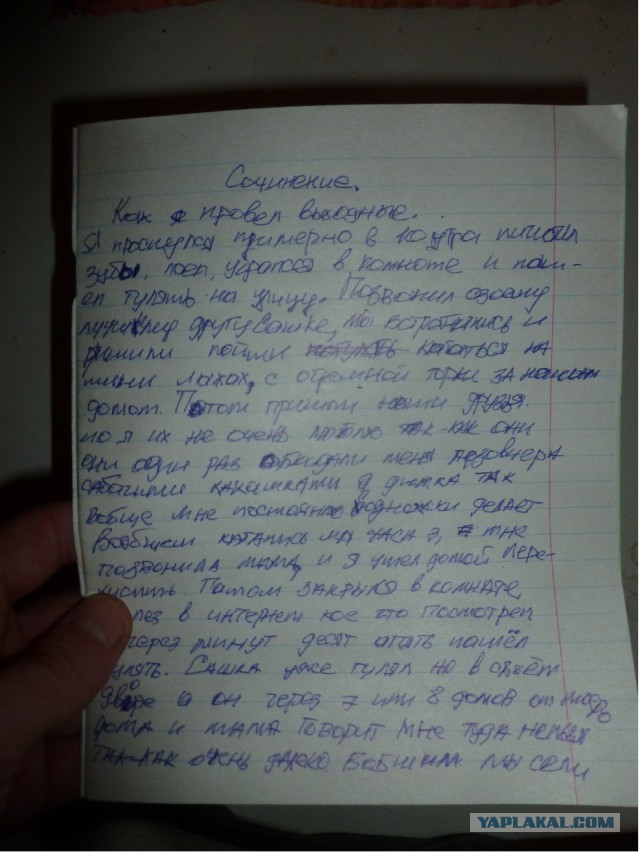 Сочинение.
Как я провел выходные.
Я проснулся примерно в 10 утра
зубы, поел, убрался в комноте и пош-
ел гулять на улицу. Позвонил своему
другу Сашке, мы встретились и
решили пойти кататься на
мини лыжах, с огромной горки за нашим
домом. Потом пришли наши друзья.
но я их не очень люблю так-как они
они один раз обкидали меня
какашками а димка так
вобще мне постоянно подножки делает
Вообщем катались мы часа 3, мне
позвонила мама, и я ушел домой
Патом закрылся в комнате,
в интернет кое что посмотрел
через минут десят опать пашёл
Сашка уже гулял но в своём
дворе а он через 7 или 8 домов от моего
дома и мама говорит мне туда нельзя
так-как очень далеко. мы сели
YAPLAKAL.COM